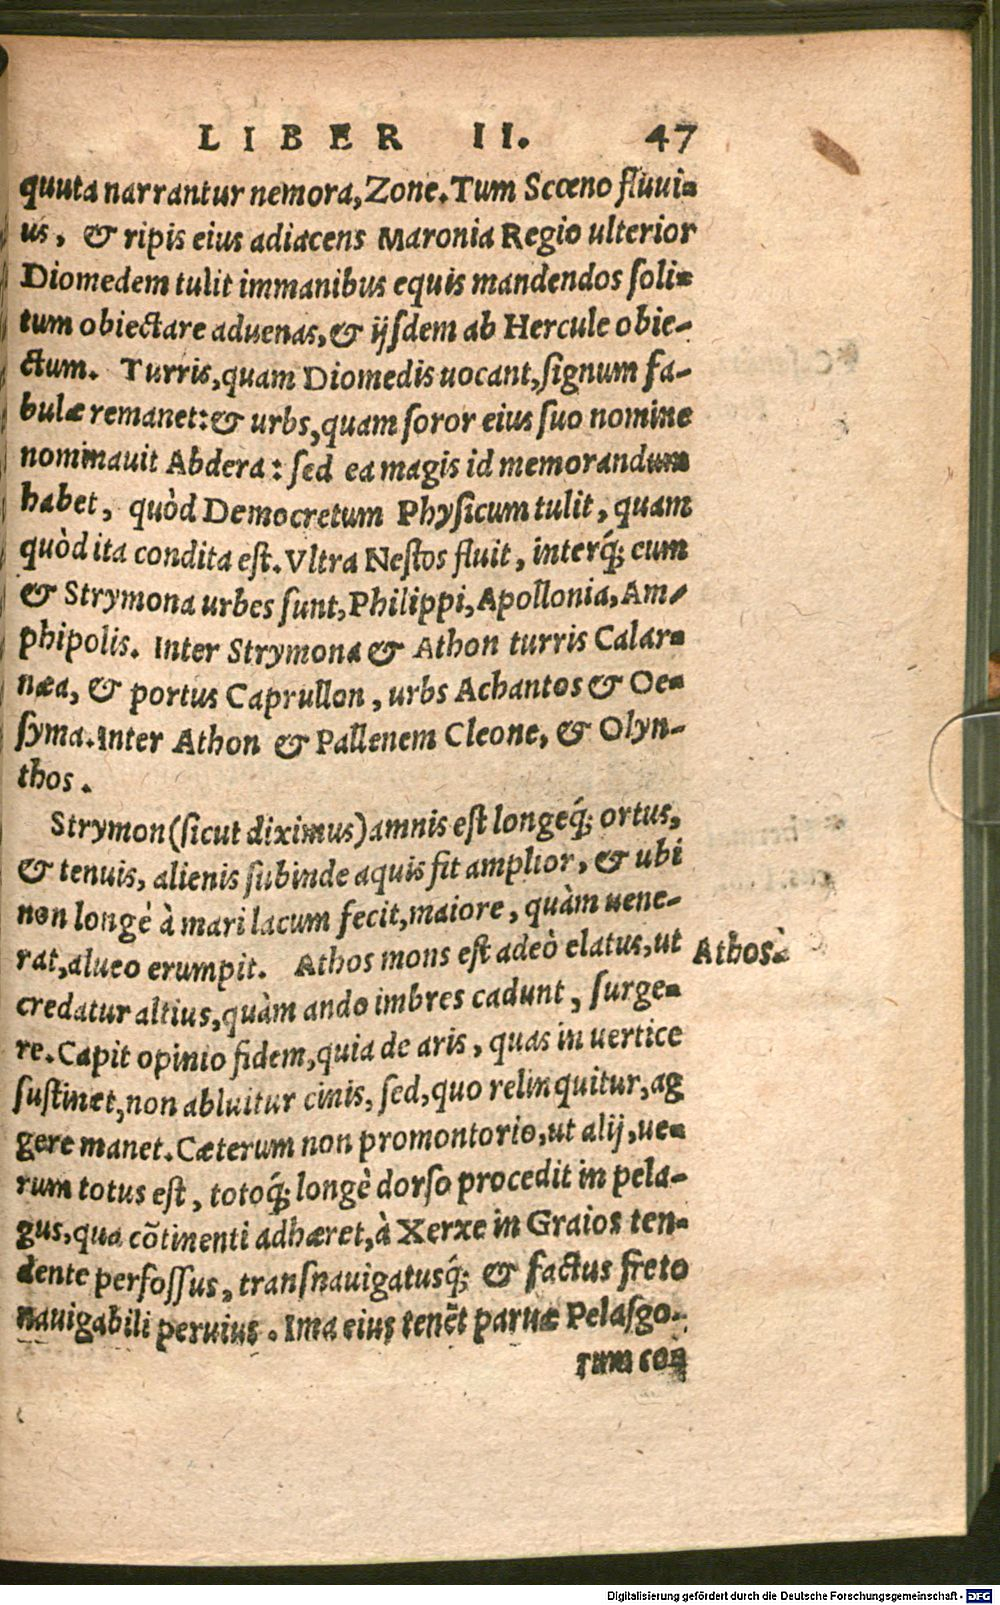 LIBER II. 47
quuta narrantur nemora, Zone. Tum Scœno fluui-
us, & ripis eius adiacens Maronia Regio ulterior
Diomedem tulit immanibus equis mandendos soli-
tum obiectare aduenas, & ijsdem ab Hercule obie-
ctum. Turris, quam Diomedis uocant, signum fa-
bulæ remanet: & urbs, quam soror eius suo nomine
nominauit Abdera: sed ea magis id memorandum
habet, quòd Democretum Physicum tulit, quam
quòd ita condita est. Vltra Nestos fluit, interq́; eum
& Strymona urbes sunt, Philippi, Apollonia, Am-
phipolis. Inter Strymona & Athon turris Calar-
næa, & portus Caprullon, urbs Achantos & Oe-
syma. Inter Athon & Pallenem Cleone, & Olyn-
thos.
Strymon (sicut diximus) amnis est longeq́; ortus,
& tenuis, alienis subinde aquis fit amplior, & ubi
non longè à mari lacum fecit, maiore, quàm uene-
rat, alueo erumpit. Athos mons est adeò elatus, ut
Athos
credatur altius, quàm ando imbres cadunt, surge-
re. Capit opinio fidem, quia de aris, quas in uertice
sustinet, non abluitur cinis, sed, quo relinquitur, ag
gere manet. Cæterum non promontorio, ut alij, ue-
rum totus est, totoq́; longè dorso procedit in pela-
gus, qua cõtinenti adhæret, à Xerxe in Graios ten-
dente perfossus, transnauigatusq́; & factus freto
nauigabili peruius. Ima eius tenẽt paruæ Pelasgo-
rum con
Digitalisierung gefördert durch die Deutsche Forschungsgemeinschaft - DFG